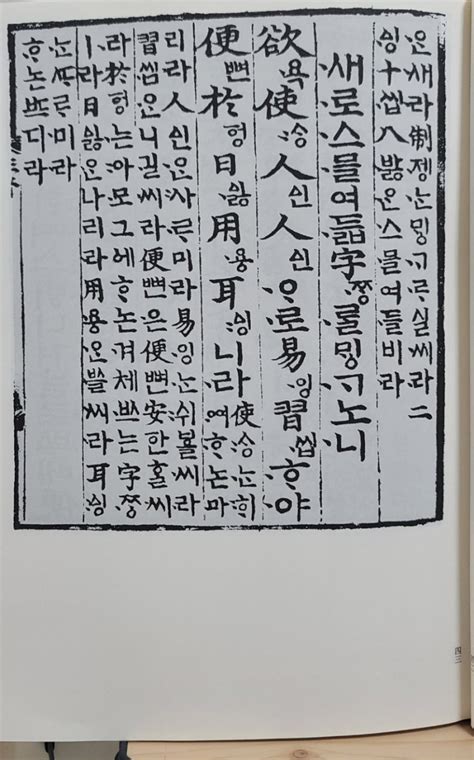 ᄋᆞᆫ〮새〮라〮制졩〮ᄂᆞᆫ〮ᄆᆡᇰᄀᆞᄅᆞ실〮씨라〮二
ᅀᅵᆼ〮十씹〮八바ᇙ〮ᄋᆞᆫ〮스〮믈〮여들〮비라〮
새〮로〮스〮믈〮여듧〮字ᄍᆞᆼ〮ᄅᆞᆯ〮ᄆᆡᇰᄀᆞ〮노니〮
欲욕〮使ᄉᆞᆼ〯人ᅀᅵᆫ人ᅀᅵᆫᄋᆞ〮로〮易잉〮習씹〮ᄒᆞ〮야〮
便뼌於ᅙᅥᆼ日ᅀᅵᇙ〮用요ᇰ〮耳ᅀᅵᆼ〯니라〮
使ᄉᆞᆼ〯ᄂᆞᆫ〮ᄒᆡ〯
ᅇᅧ〮ᄒᆞ논〮마〯
리라〮人ᅀᅵᆫᄋᆞᆫ〮사〯ᄅᆞ미〮라〮易잉〮ᄂᆞᆫ〮쉬〯ᄫᅳᆯ〮씨라〮
習씹〮ᄋᆞᆫ〮니길〮씨라〮便뼌은〮便뼌安ᅙᅡᆫᄒᆞᆯ〮씨
라〮於ᅙᅥᆼ는〮아〯모〮그ᅌᅦ〮ᄒᆞ논〮겨체〮ᄡᅳ는〮字ᄍᆞᆼ〮
ㅣ라〮日ᅀᅵᇙ〮ᄋᆞᆫ〮나리라〮用요ᇰ〮ᄋᆞᆫ〮ᄡᅳᆯ〮씨라〮耳ᅀᅵᆼ〯
ᄂᆞᆫ〮ᄯᆞᄅᆞ미〮라〮
ᄒᆞ논〮ᄠᅳ디〮라〮
四三